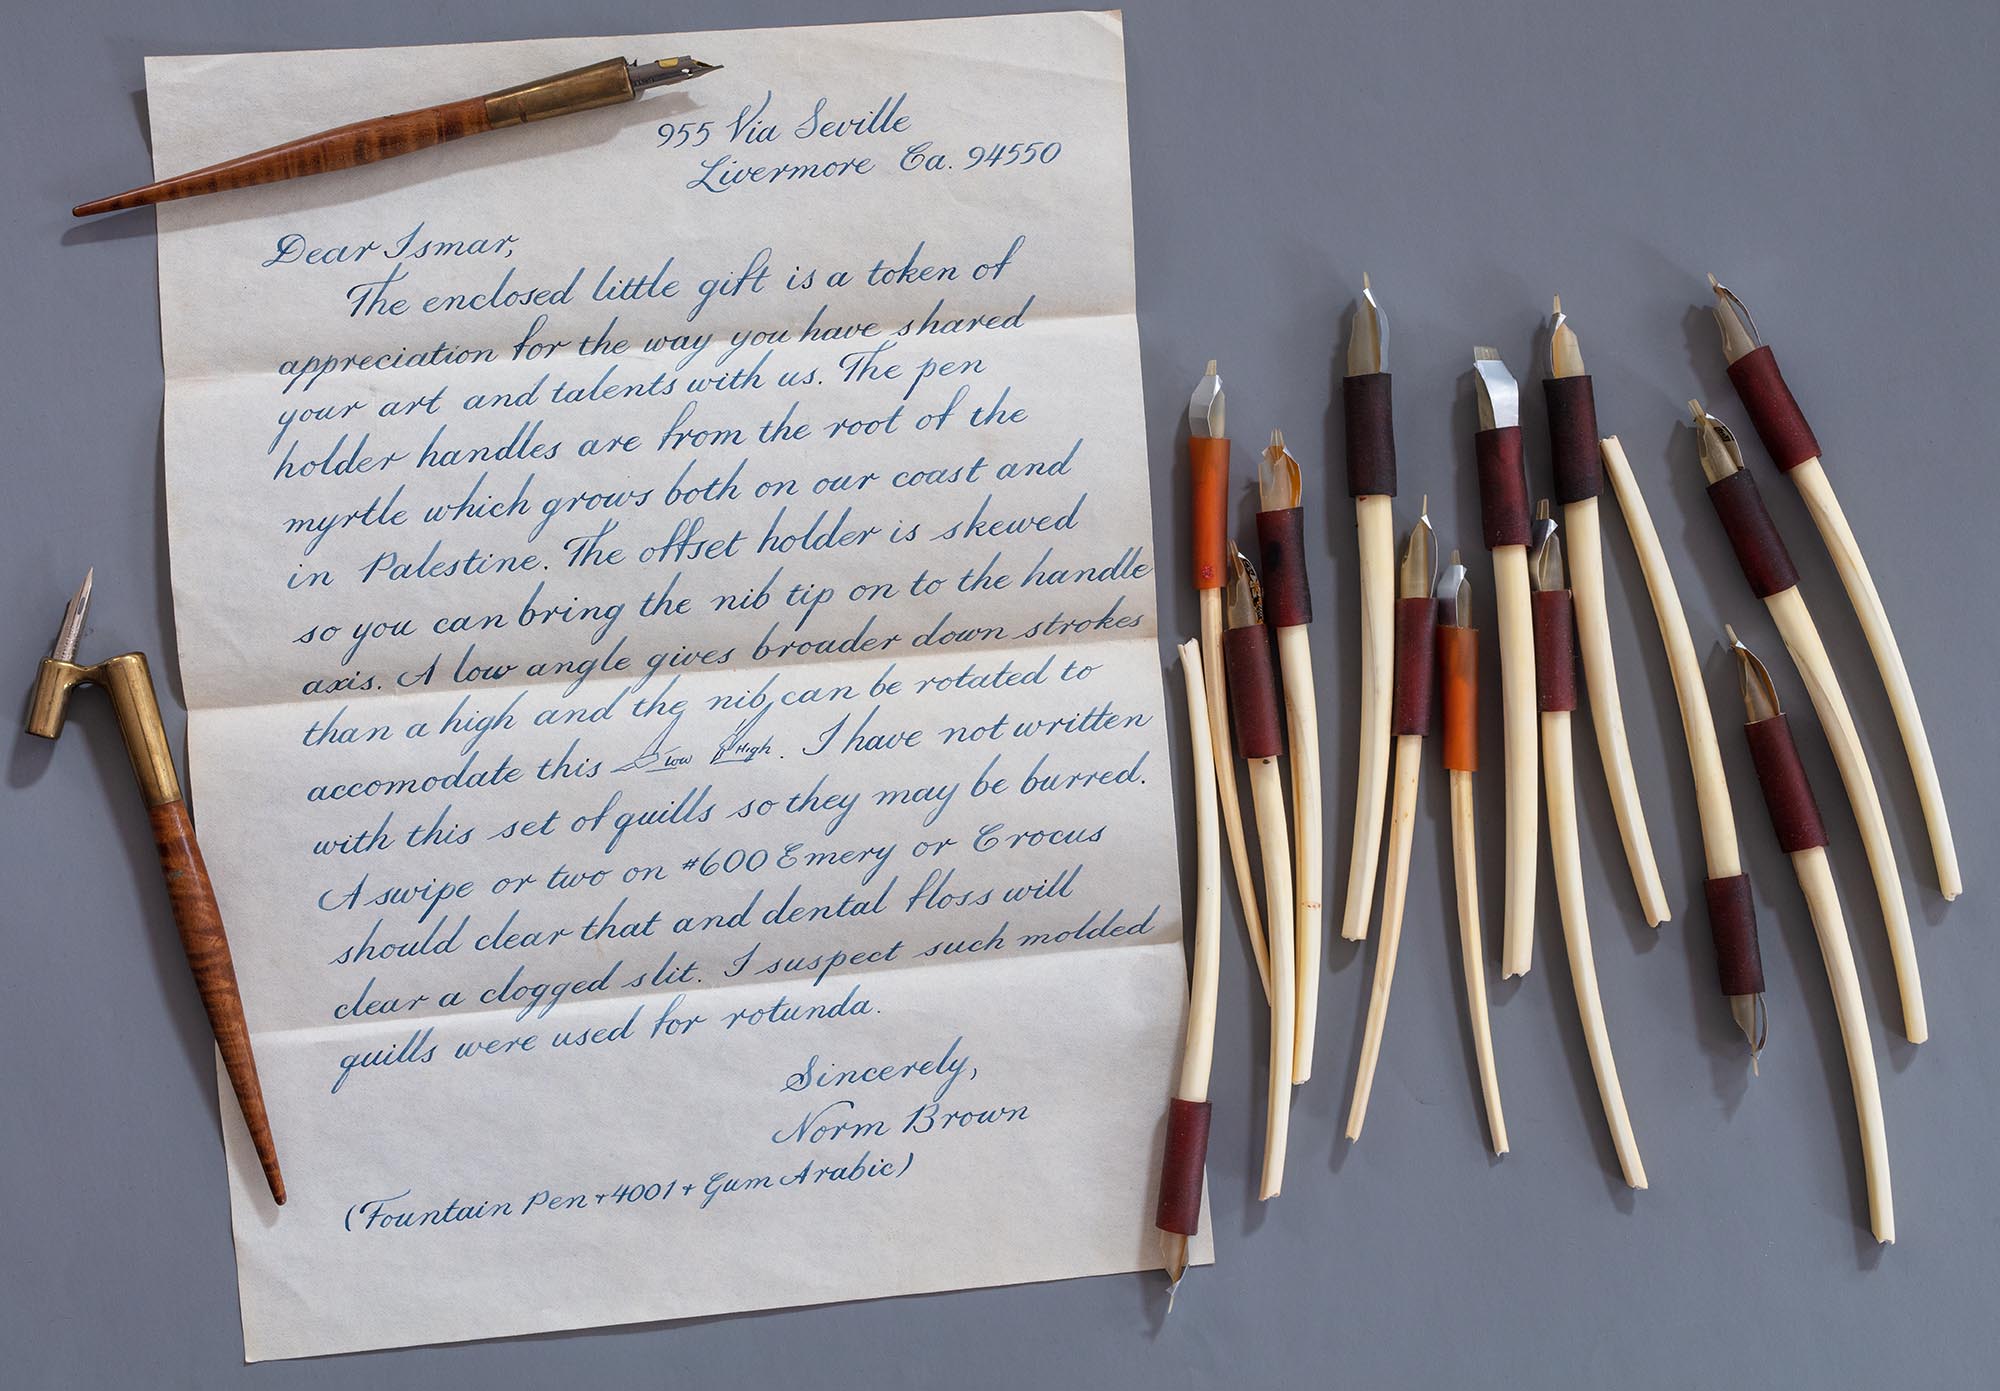 955 Via Seville
Livermore Ca. 94550
Dear Ismar,
The enclosed little gift is a token of
appreciation for the way you have shared
your art and talents with us. The pen
holder handles are from the root of the
myrtle which grows both on our coast and
in Palestine. The offset holder is skewed
so you can bring the nib tip on to the handle
axis. A low angle gives broader down strokes
than a high and the nib can be rotated to
accomodate this low High. I have not written
with this set of quills so they may be burred.
A swipe or two on #600 Emery or Crocus
should clear that and dental floss will
clear a clogged slit. I suspect such molded
quills were used for rotunda.
Sincerely,
Norm Brown
(Fountain Pen + 4001 + Gum Arabic)